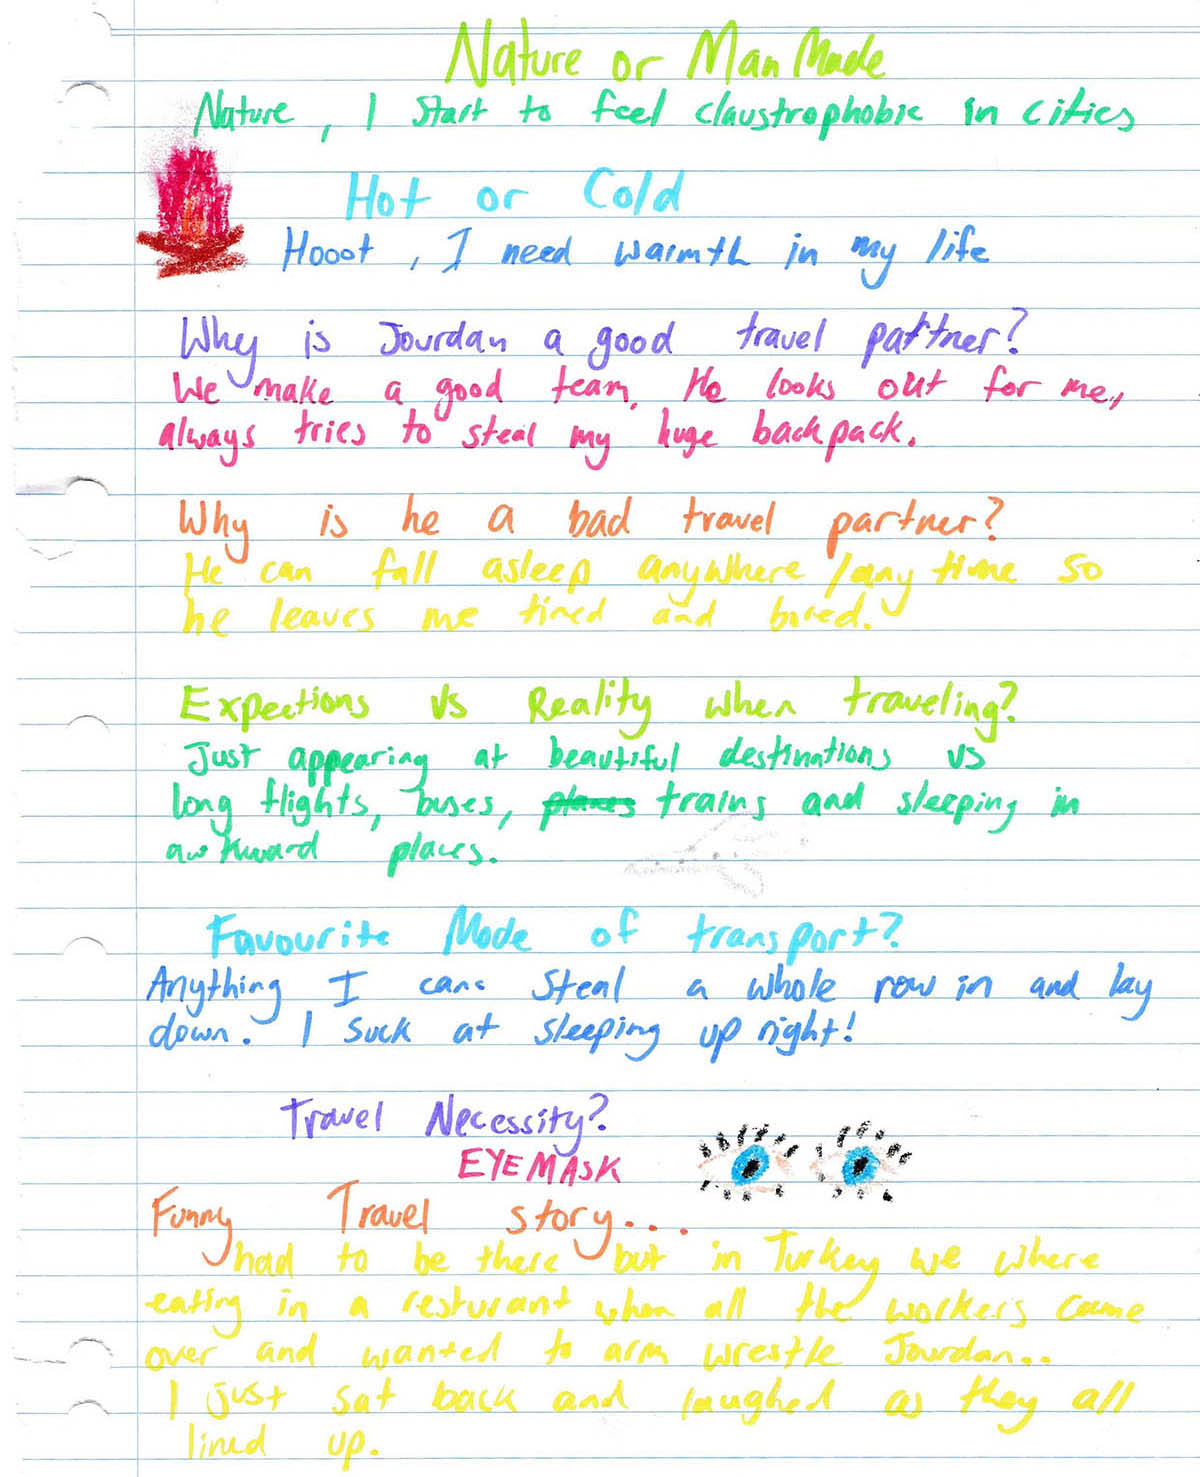 Nature or Man Made
Nature, I start to feel claustrophobic in cities
Hot or Cold
Hooot, I need warmth in my life
Why is Jourdan a good travel partner?
We make a good team. He looks out for me,
always tries to steal my huge backpack.
Why is he a bad travel partner?
He can fall asleep anywhere/any time so
he leaves me tired and bored.
Expections vs Reality when traveling?
Just appearing at beautiful destinations vs
long flights, buses, planes trains and sleeping in
awkward places.
Favourite Mode of transport?
Anything I can steal a whole row in and lay
down. I suck at sleeping up right!
Travel Necessity?
EYEMASK
Funny Travel story...
had to be there but in Turkey we where
eating in a resturant when all the workers came
over and wanted to arm wrestle Jourdan..
I just sat back and laughed as they all
lined up.